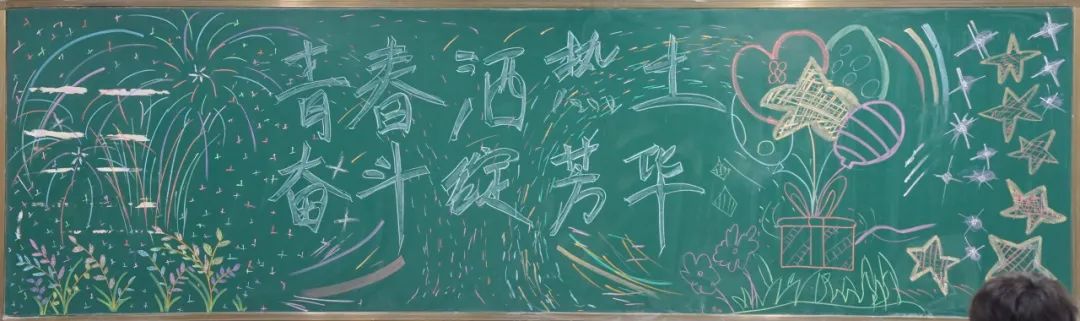 青春洒热土
奋斗绽芳华